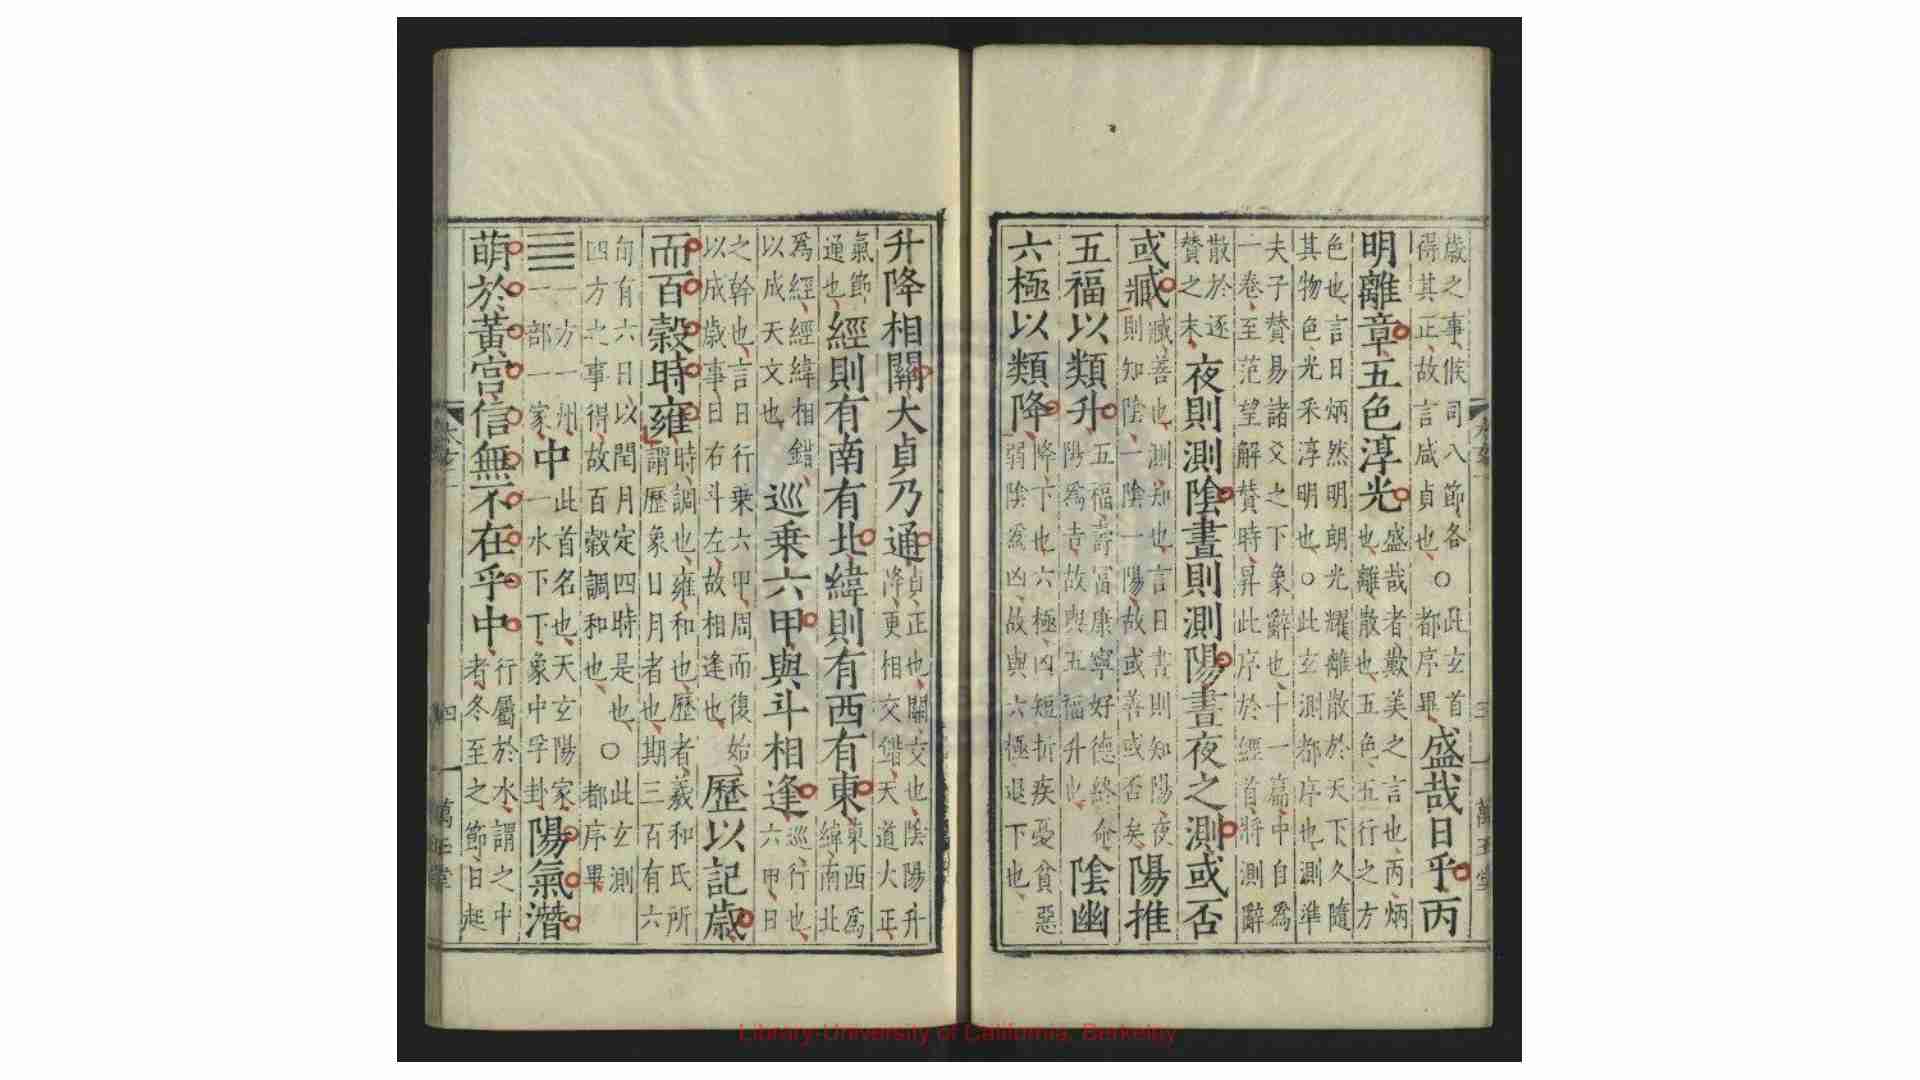 歲之事候司八節各得其正故言咸貞也○此玄首都序畢盛哉日乎丙
明離章五色淳光盛哉者歎美之言也丙炳也離散也五色五行之方
色也言日炳然明朗光耀離散於天下久隨其物色光采淳明也○此玄測都序也測準
夫子贊易諸爻之下象辭也十一篇中自為一卷至范望解贊時昇此序於經首將測辭
散於逐贊之末夜則測陰晝則測陽晝夜之測或否
或臧臧善也測知也言日晝則知陽夜則知陰一陰一陽故或善或否矣陽推
五福以類升五福壽富康寧好德終命陽為吉故與五福升也陰幽
六極以類降降下也六極凶短折疾憂貧惡弱陰為凶故與六極退下也
升降相關大貞乃通貞正也關交也陰陽升降更相交錯天道大正
氣節通也經則有南有北緯則有西有東東西為緯南北
為經經緯相錯以成天文也巡乘六甲與斗相逢巡行也六甲日
之幹也言日行乘六甲周而復始以成歲事日右斗左故相逢也歷以記歲
而百穀時雍時調也雍和也歷者羲和氏所謂歷象日月者也期三百有六
旬有六日以閏月定四時是也四方之事得故百穀調和也○此玄測都序畢
𝌆一方一州一部一家中此首名也天玄陽家一水下下象中孚卦陽氣潛
萌於黃宮信無不在乎中行屬於水謂之中者冬至之節日起
四
萬玉堂
Library-University of California, Berkeley